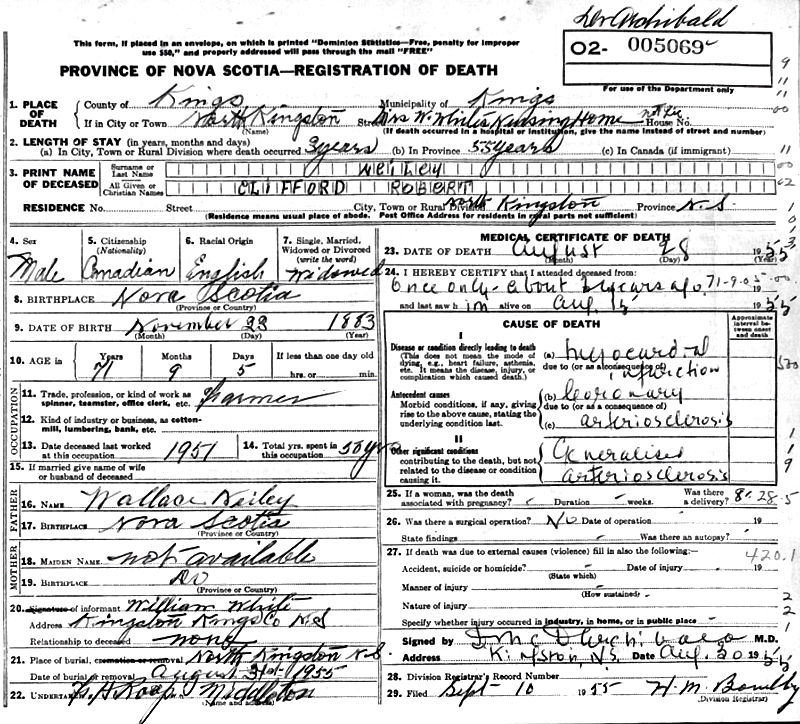 Dr Archibald
This form, if placed in an envelope, on which is printed "Dominion Statistics—Free, penalty for improper
use $50," and properly addressed will pass through the mail "FREE"
O2- 005069
For use of the Department only
PROVINCE OF NOVA SCOTIA—REGISTRATION OF DEATH
1. PLACE OF DEATH County of Kings Municipality of Kings
If in City or Town North Kingston Street Mrs W. White Nursing Home House No.
(Name) (If death occurred in a hospital or institution, give the name instead of street and number)
2. LENGTH OF STAY (in years, months and days)
(a) In City, Town or Rural Division where death occurred 3 years (b) In Province 55 years (c) In Canada (if immigrant)
3. PRINT NAME OF DECEASED Surname or Last Name
All Given or Christian Names CLIFFORD ROBERT
RESIDENCE No. Street City, Town or Rural Division North Kingston Province N.S.
(Residence means usual place of abode. Post Office Address for residents in rural parts not sufficient)
4. Sex Male
5. Citizenship (Nationality) Canadian
6. Racial Origin English
7. Single, Married, Widowed or Divorced (write the word) Widowed
8. BIRTHPLACE Nova Scotia
(Province or Country)
9. DATE OF BIRTH November 23 1883
(Month) (Day) (Year)
10. AGE in Years 71 Months 9 Days 5 If less than one day old hrs. or min.
OCCUPATION
11. Trade, profession, or kind of work as spinner, teamster, office clerk, etc. Farmer
12. Kind of industry or business, as cotton-mill, lumbering, bank, etc.
13. Date deceased last worked at this occupation 1951
14. Total yrs. spent in this occupation 50 yrs
15. If married give name of wife or husband of deceased
FATHER
16. NAME Wallace
17. BIRTHPLACE Nova Scotia
(Province or Country)
MOTHER
18. MAIDEN NAME not available
19. BIRTHPLACE Do
(Province or Country)
20. Signature of informant William White
Address Kingston Kings Co N.S
Relationship to deceased none
21. Place of burial, cremation or removal North Kingston N.S.
Date of burial or removal August 31st 1955
22. UNDERTAKER Middleton
(Name and address)
MEDICAL CERTIFICATE OF DEATH
23. DATE OF DEATH August 28 1955
(Month) (Day) (Year)
24. I HEREBY CERTIFY that I attended deceased from:
Once only - about 2 years ago 71-9-05-00
and last saw him alive on Aug. 15 1955
CAUSE OF DEATH
Approximate interval between onset and death
I
Disease or condition directly leading to death
(This does not mean the mode of dying, e.g., heart failure, asthenia, etc. It means the disease, injury, or complication which caused death.)
(a) Myocardial
due to (or as a consequence of) infarction
Antecedent causes
Morbid conditions, if any, giving rise to the above cause, stating the underlying condition last.
(b) Coronary
due to (or as a consequence of)
(c) arteriosclerosis
II
Other significant conditions
contributing to the death, but not related to the disease or condition causing it.
Generalised
arteriosclerosis
25. If a woman, was the death associated with pregnancy? Duration weeks. Was there a delivery? 8-28-5
26. Was there a surgical operation? No Date of operation 19
State findings Was there an autopsy?
27. If death was due to external causes (violence) fill in also the following:— 420.1
Accident, suicide or homicide? Date of injury 19
(State which)
Manner of injury
(How sustained)
Nature of injury
Specify whether injury occurred in industry, in home, or in public place
Signed by M.D.
Address Kingston, N.S. Date Aug. 30 1955
28. Division Registrar's Record Number
29. Filed Sept 10 1955 H.M.
(Division Registrar)